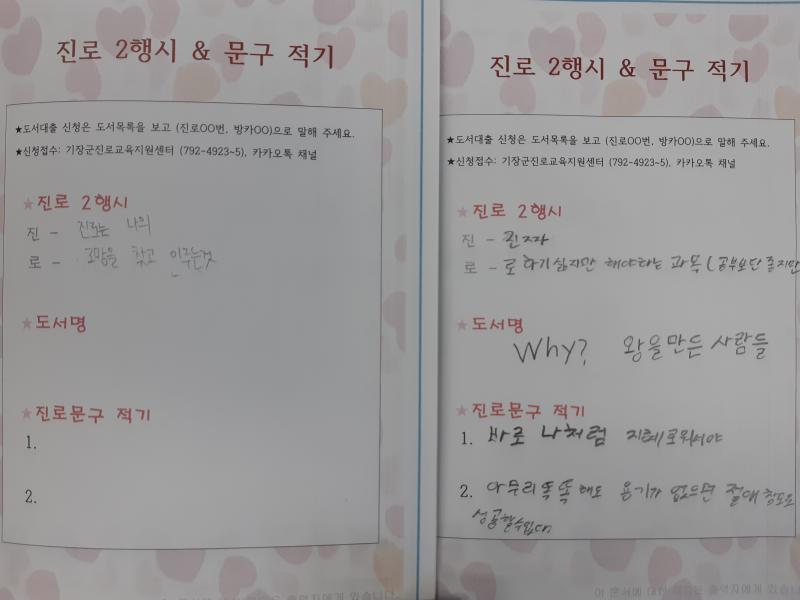 진로 2행시 & 문구 적기
★도서대출 신청은 도서목록을 보고 (진로OO번, 방카OO)으로 말해 주세요.
★신청접수: 기장군진로교육지원센터 (792-4923~5), 카카오톡 채널
★진로 2행시
진 - 진로는 나의
로 - 찾고
★도서명
★진로문구 적기
1.
2.
진로 2행시 & 문구 적기
★도서대출 신청은 도서목록을 보고 (진로OO번, 방카OO)으로 말해 주세요.
★신청접수: 기장군진로교육지원센터 (792-4923~5), 카카오톡 채널
★진로 2행시
진 - 진짜
로 - 로 하기싫지만 해야하는 과목 (공부보단 좋지만
★도서명
Why? 왕을만든 사람들
★진로문구 적기
1. 바로 나처럼 지혜로워서야
2. 아무리똑똑해도 용기가 없으면 절대
성공할수없다.